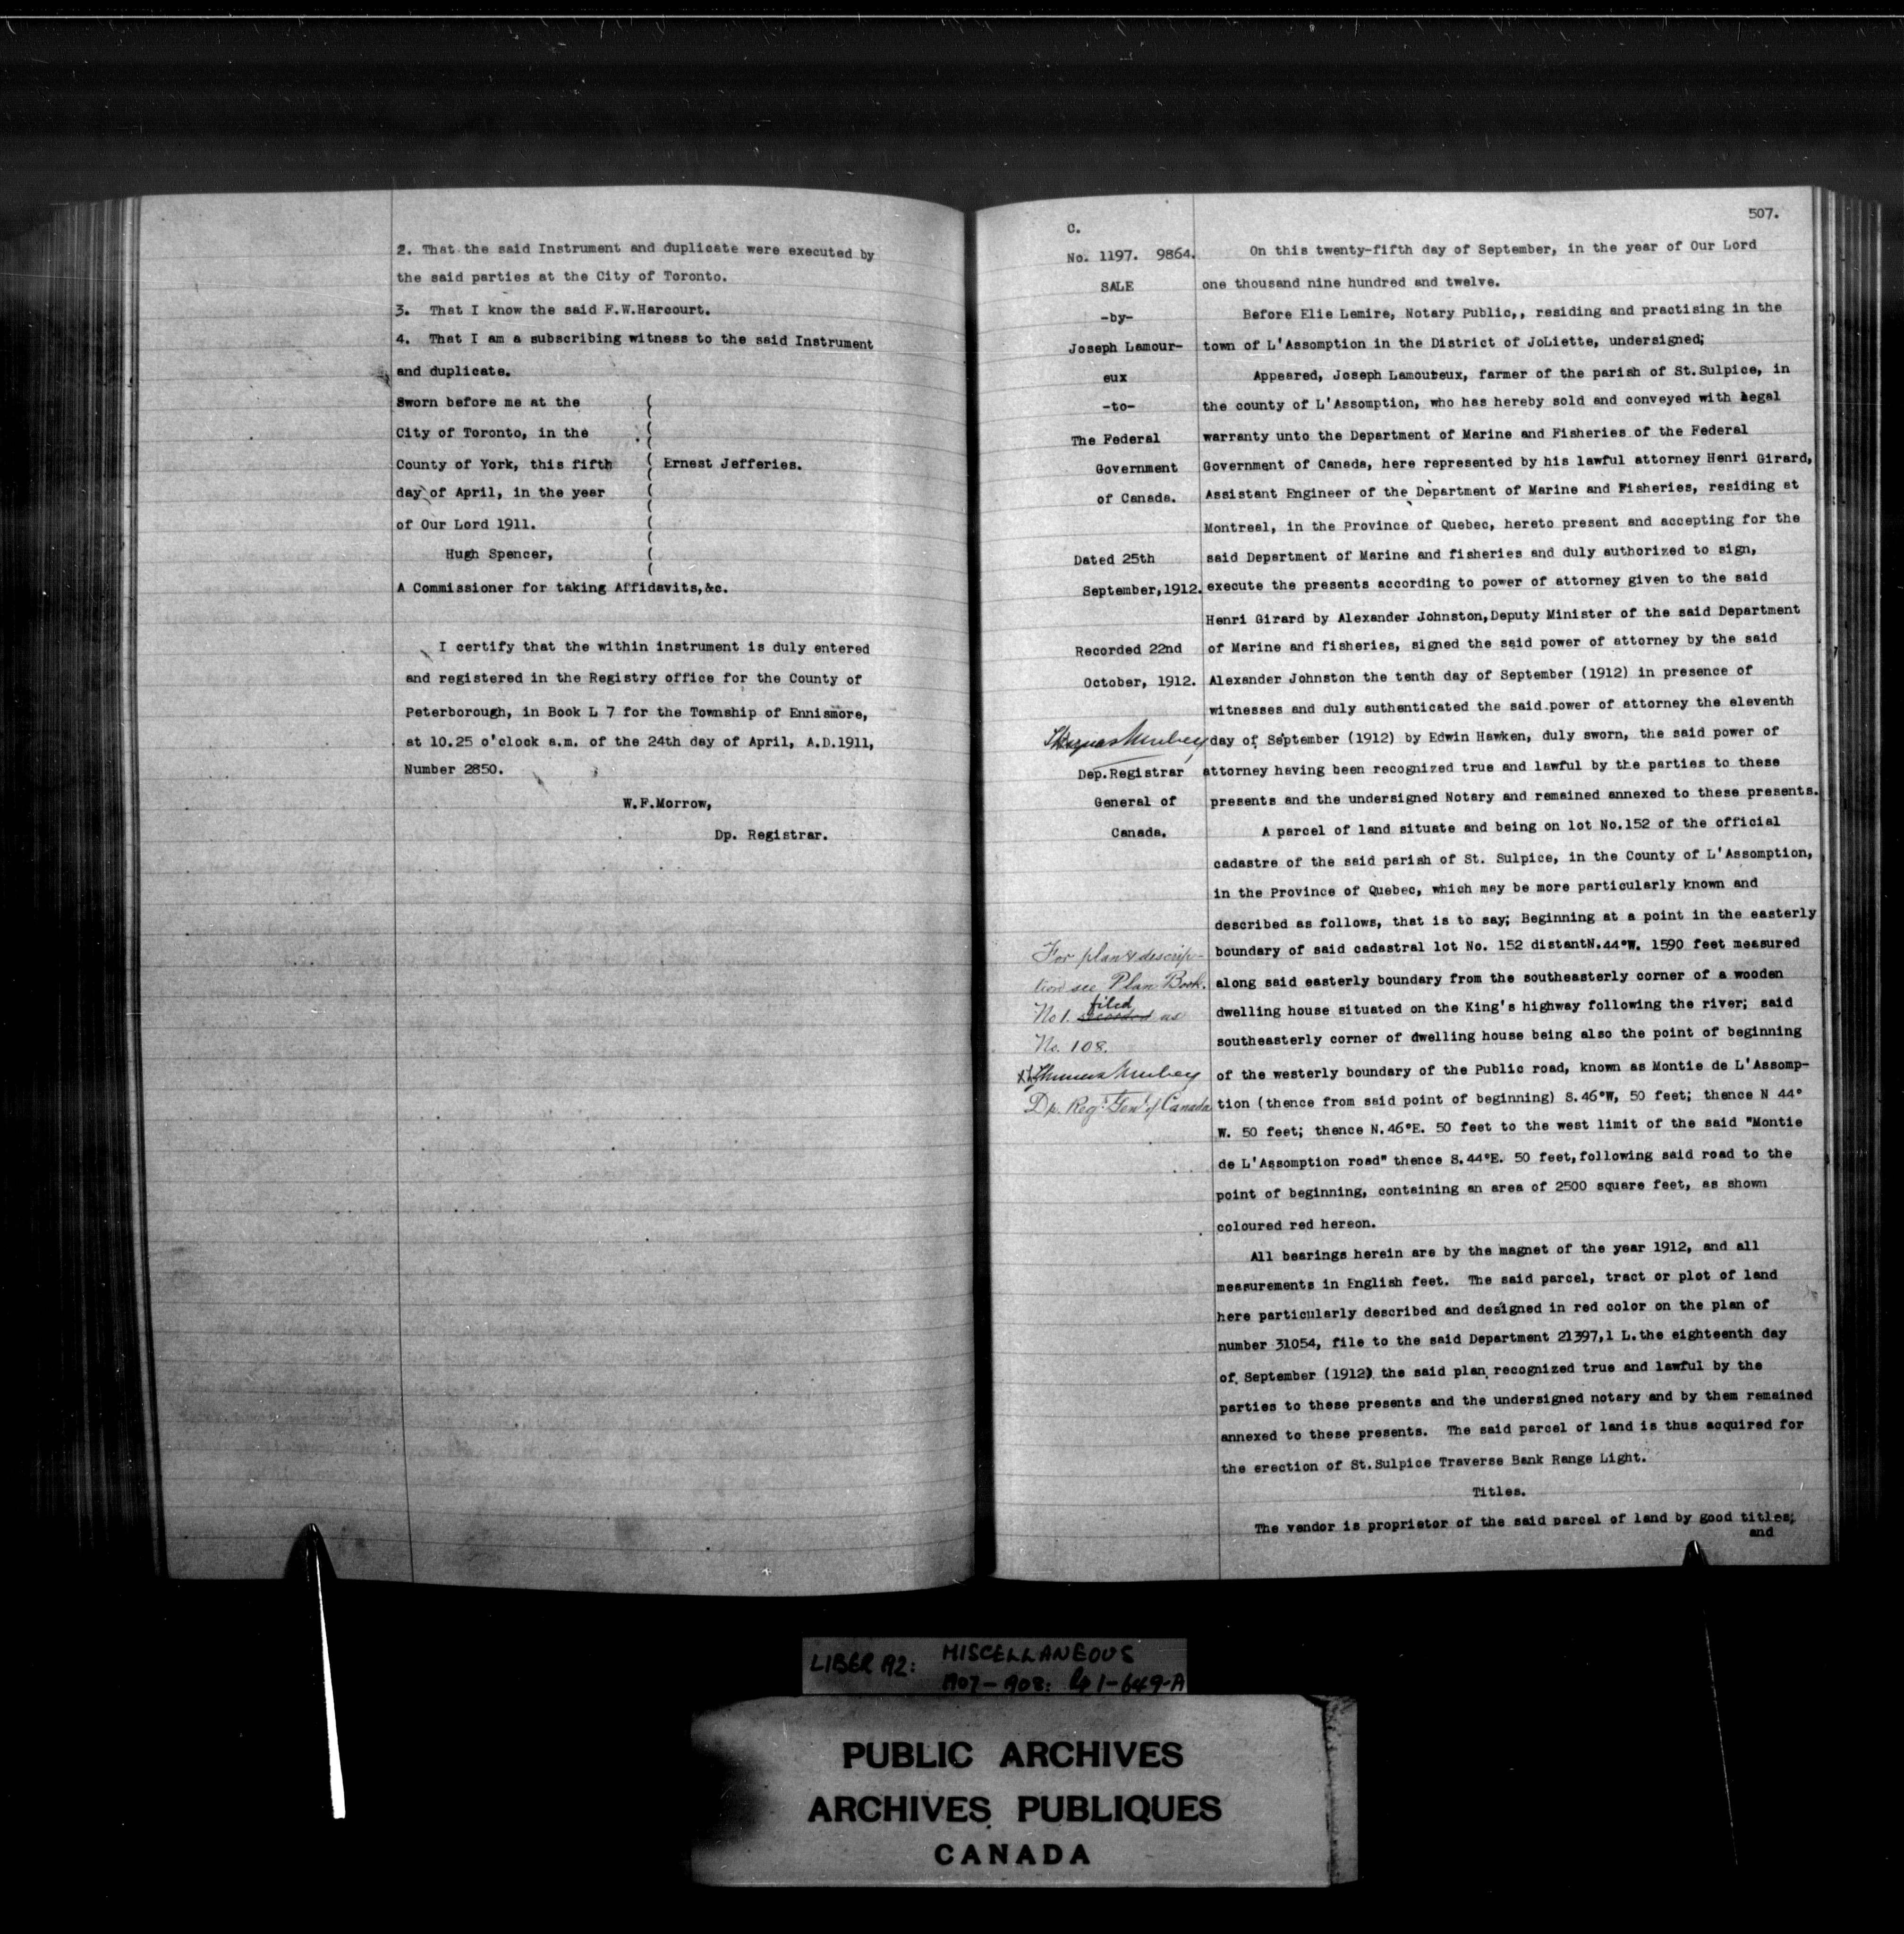 2. That the said Instrument and duplicate were executed by
the said parties at the City of Toronto.
3. That I know the said F.W.Harcourt.
4. That I am a subscribing witness to the said Instrument
and duplicate.
Sworn before me at the (
City of Toronto, in the (
County of York, this fifth ( Ernest Jefferies.
day of April, in the year (
of Our Lord 1911. (
Hugh Spencer, (
A Commissioner for taking Affidavits,&c.
I certify that the within instrument is duly entered
and registered in the Registry office for the County of
Peterborough, in Book L 7 for the Township of Ennismore,
at 10.25 o'clock a.m. of the 24th day of April, A.D.1911,
Number 2850.
W.F.Morrow,
Dp. Registrar.
507.
C.
No. 1197. 9864.
SALE
-by-
Joseph Lamour-
eux
-to-
The Federal
Government
of Canada.
Dated 25th
September,1912.
Recorded 22nd
October, 1912.
Thomas Mulvey
Dep.Registrar
General of
Canada.
For plan & descrip-
tion see Plan Book.
No 1. filed as
No. 108.
Thomas Mulvey
Dp. Regr. Genl of Canada
On this twenty-fifth day of September, in the year of Our Lord
one thousand nine hundred and twelve.
Before Elie Lemire, Notary Public,, residing and practising in the
town of L'Assomption in the District of JoLiette, undersigned;
Appeared, Joseph Lamoureux, farmer of the parish of St.Sulpice, in
the county of L'Assomption, who has hereby sold and conveyed with legal
warranty unto the Department of Marine and Fisheries of the Federal
Government of Canada, here represented by his lawful attorney Henri Girard,
Assistant Engineer of the Department of Marine and Fisheries, residing at
Montreal, in the Province of Quebec, hereto present and accepting for the
said Department of Marine and fisheries and duly authorized to sign,
execute the presents according to power of attorney given to the said
Henri Girard by Alexander Johnston,Deputy Minister of the said Department
of Marine and fisheries, signed the said power of attorney by the said
Alexander Johnston the tenth day of September (1912) in presence of
witnesses and duly authenticated the said power of attorney the eleventh
day of September (1912) by Edwin Hawken, duly sworn, the said power of
attorney having been recognized true and lawful by the parties to these
presents and the undersigned Notary and remained annexed to these presents.
A parcel of land situate and being on lot No.152 of the official
cadastre of the said parish of St. Sulpice, in the County of L'Assomption,
in the Province of Quebec, which may be more particularly known and
described as follows, that is to say; Beginning at a point in the easterly
boundary of said cadastral lot No. 152 distantN.44°W. 1590 feet measured
along said easterly boundary from the southeasterly corner of a wooden
dwelling house situated on the King's highway following the river; said
southeasterly corner of dwelling house being also the point of beginning
of the westerly boundary of the Public road, known as Montie de L'Assomp-
tion (thence from said point of beginning) S.46°W, 50 feet; thence N 44°
W. 50 feet; thence N.46°E. 50 feet to the west limit of the said "Montie
de L'Assomption road" thence S.44°E. 50 feet,following said road to the
point of beginning, containing an area of 2500 square feet, as shown
coloured red hereon.
All bearings herein are by the magnet of the year 1912, and all
measurements in English feet. The said parcel, tract or plot of land
here particularly described and designed in red color on the plan of
number 31054, file to the said Department 21397,1 L.the eighteenth day
of September (1912) the said plan recognized true and lawful by the
parties to these presents and the undersigned notary and by them remained
annexed to these presents. The said parcel of land is thus acquired for
the erection of St.Sulpice Traverse Bank Range Light.
Titles.
The vendor is proprietor of the said parcel of land by good titles;
and
LIBER A2: MISCELLANEOUS
1907-1908: 1-649-A
PUBLIC ARCHIVES
ARCHIVES PUBLIQUES
CANADA